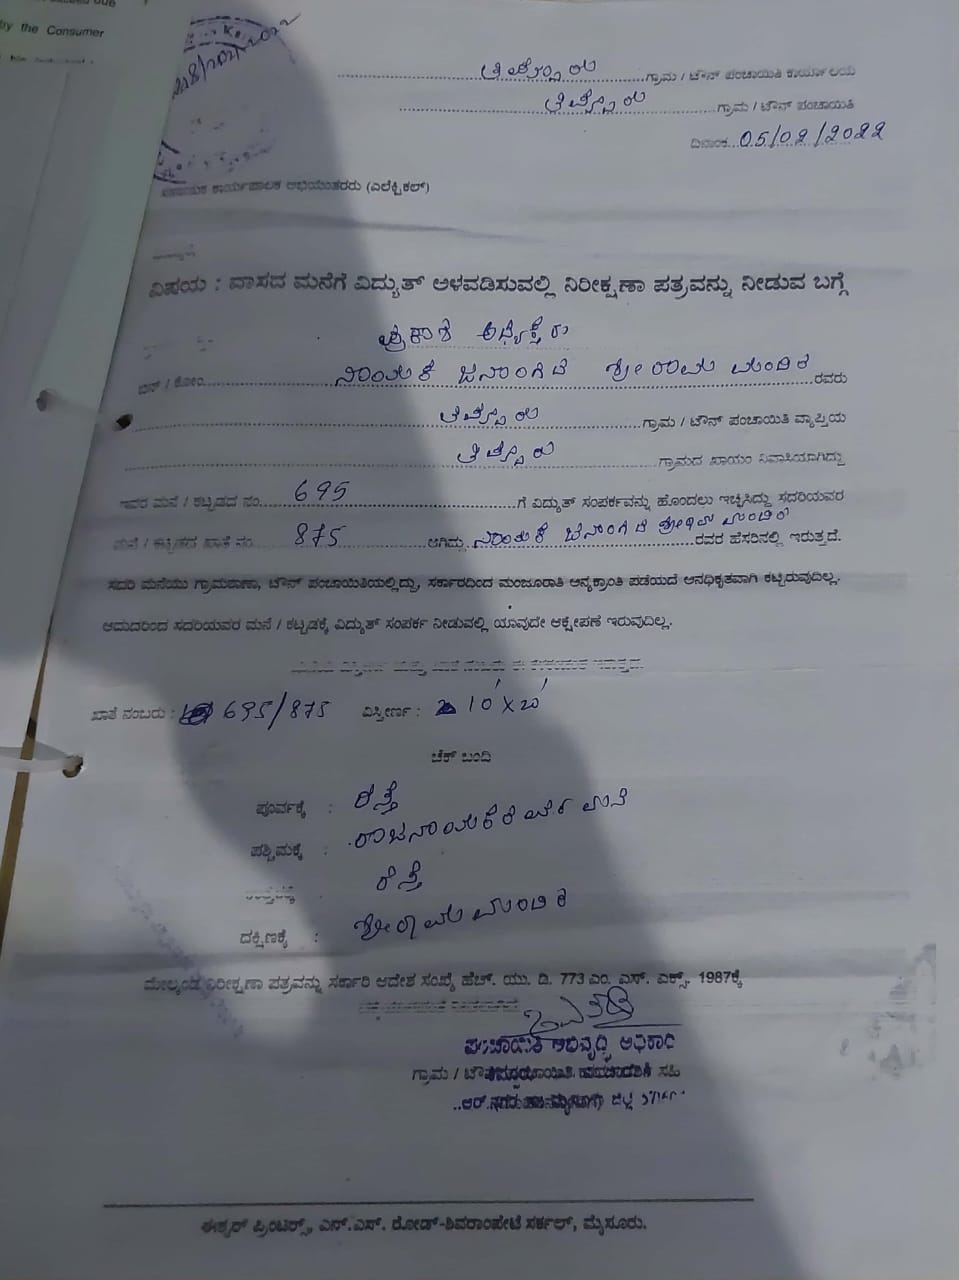 by the Consumer
ತಿಪ್ಪೂರು ಗ್ರಾಮ / ಟೌನ್ ಪಂಚಾಯಿತಿ ಕಾರ್ಯಾಲಯ
ತಿಪ್ಪೂರು ಗ್ರಾಮ / ಟೌನ್ ಪಂಚಾಯಿತಿ
ದಿನಾಂಕ 05/02/2022
ಕಾರ್ಯಪಾಲಕ ಅಭಿಯಂತರರು (ಎಲೆಕ್ಟ್ರಿಕಲ್)
ವಿಷಯ : ವಾಸದ ಮನೆಗೆ ವಿದ್ಯುತ್ ಅಳವಡಿಸುವಲ್ಲಿ ನಿರೀಕ್ಷಣಾ ಪತ್ರವನ್ನು ನೀಡುವ ಬಗ್ಗೆ
ಪ್ರಕಾಶ ಅಧ್ಯಕ್ಷರು
ಬಿನ್ / ಕೋಂ ನಾಯಕ ಜನಾಂಗದ ಶ್ರೀರಾಮ ಮಂದಿರ ರವರು
ತಿಪ್ಪೂರು ಗ್ರಾಮ / ಟೌನ್ ಪಂಚಾಯಿತಿ ವ್ಯಾಪ್ತಿಯ
ತಿಪ್ಪೂರು ಗ್ರಾಮದ ಖಾಯಂ ನಿವಾಸಿಯಾಗಿದ್ದು
ಇವರ ಮನೆ / ಕಟ್ಟಡದ ನಂ. 695 ಗೆ ವಿದ್ಯುತ್ ಸಂಪರ್ಕವನ್ನು ಹೊಂದಲು ಇಚ್ಛಿಸಿದ್ದು ಸದರಿಯವರ
ಮನೆ / ಕಟ್ಟಡದ ಖಾತೆ ನಂ. 875 ಆಗಿದ್ದು ನಾಯಕ ಜನಾಂಗದ ಶ್ರೀರಾಮ ಮಂದಿರ ರವರ ಹೆಸರಿನಲ್ಲಿ ಇರುತ್ತದೆ.
ಸದರಿ ಮನೆಯು ಗ್ರಾಮಠಾಣಾ, ಟೌನ್ ಪಂಚಾಯಿತಿಯಲ್ಲಿದ್ದು, ಸರ್ಕಾರದಿಂದ ಮಂಜೂರಾತಿ ಅನ್ಯಕ್ರಾಂತಿ ಪಡೆಯದೆ ಅನಧಿಕೃತವಾಗಿ ಕಟ್ಟಿರುವುದಿಲ್ಲ.
ಆದುದರಿಂದ ಸದರಿಯವರ ಮನೆ / ಕಟ್ಟಡಕ್ಕೆ ವಿದ್ಯುತ್ ಸಂಪರ್ಕ ನೀಡುವಲ್ಲಿ ಯಾವುದೇ ಆಕ್ಷೇಪಣೆ ಇರುವುದಿಲ್ಲ.
ಖಾತೆ ನಂಬರು : 695/875 ವಿಸ್ತೀರ್ಣ : 10'X20'
ಚೆಕ್ ಬಂದಿ
ಪೂರ್ವಕ್ಕೆ : ರಸ್ತೆ
ಪಶ್ಚಿಮಕ್ಕೆ : ರಾಜನಾಯಕರವರ ಮನೆ
ಉತ್ತರಕ್ಕೆ : ರಸ್ತೆ
ದಕ್ಷಿಣಕ್ಕೆ : ಶ್ರೀರಾಮ ಮಂದಿರ
ಮೇಲ್ಕಂಡ ನಿರೀಕ್ಷಣಾ ಪತ್ರವನ್ನು ಸರ್ಕಾರಿ ಆದೇಶ ಸಂಖ್ಯೆ ಹೆಚ್. ಯು. ಡಿ. 773 ಎಂ. ಎಸ್. ಎಕ್ಸ್. 1987ಕ್ಕೆ
ಪಂಚಾಯಿತಿ ಅಭಿವೃದ್ಧಿ ಅಧಿಕಾರಿ
ಗ್ರಾಮ / ಟೌನ್ ಸಹಿ
ಈಶ್ವರ್ ಪ್ರಿಂಟರ್ಸ್, ಎನ್.ಎಸ್. ರೋಡ್-ಶಿವರಾಂಪೇಟೆ ಸರ್ಕಲ್, ಮೈಸೂರು.